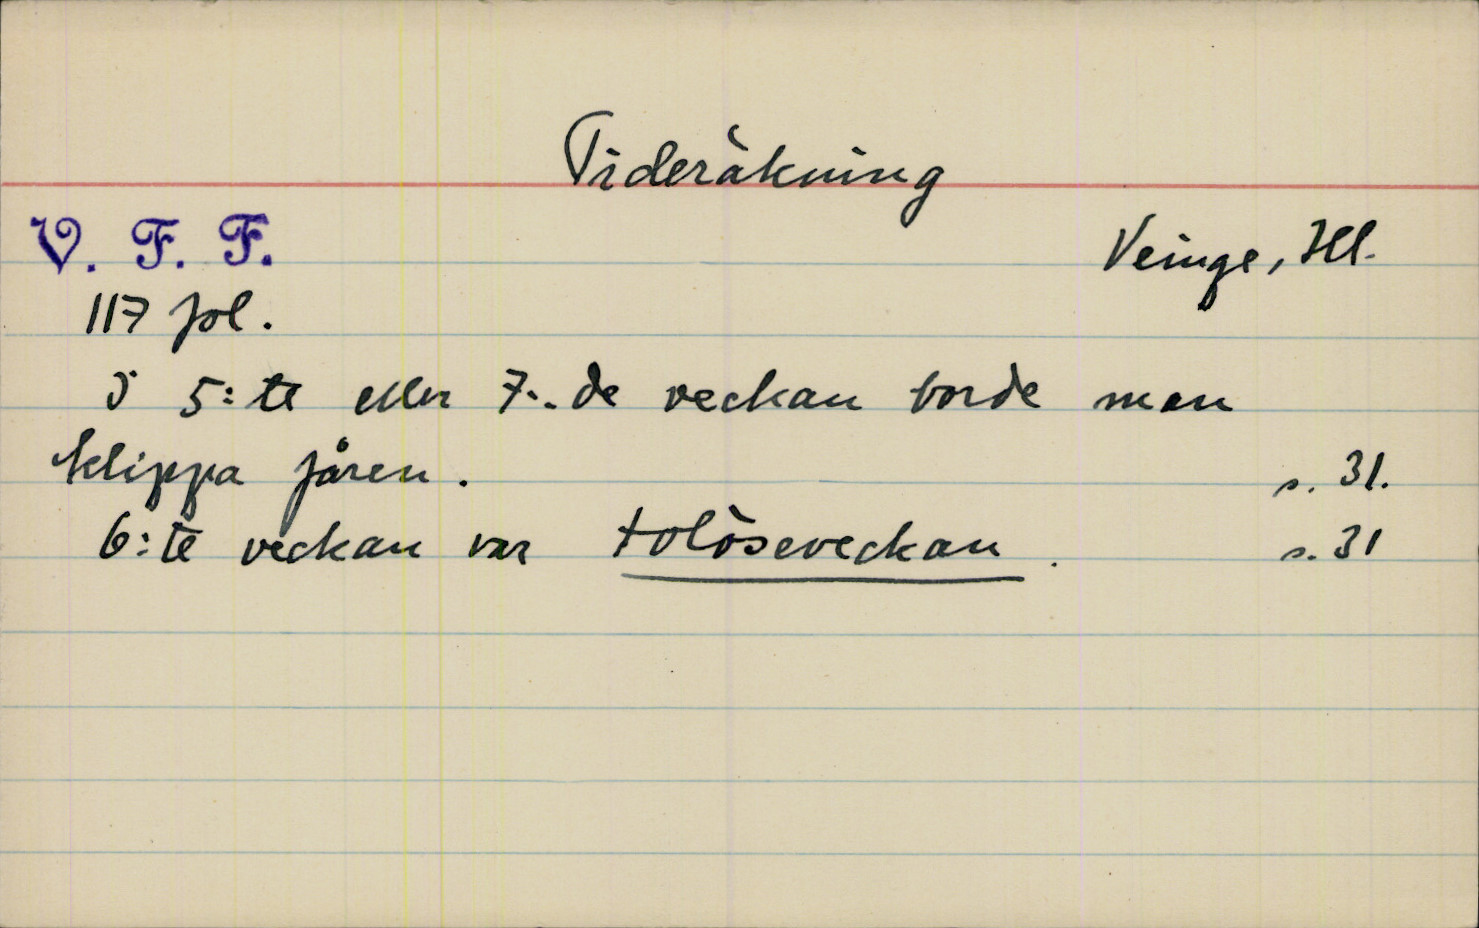 Tideräkning
V. F. F.
Veinge, Hl.
117 fol.
I 5:te eller 7:de veckan borde man
klippa fåren. s. 31.
6:te veckan var tolöseveckan. s. 31